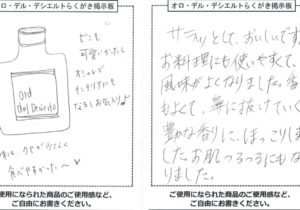 オロ・デル・デシエルトらくがき掲示板
どこも
可愛いかったし
オシャレで
インテリアにも
なるしお気入り
Oro
del Desierto
クセがなくて
食べやすかった〜
ご使用になられた商品のご使用感など、
ご自由にお書きください。
オロ・デル・デシエルトらくがき掲示板
サラッとして、おいしいです
お料理にも使いやすくて、
風味がよくなりました。香
もよくて、鼻に抜けていく
豊かな香りに、ほっこりしま
した。お肌つるつるにもな
りました。
ご使用になられた商品のご使用感など、
ご自由にお書きください。